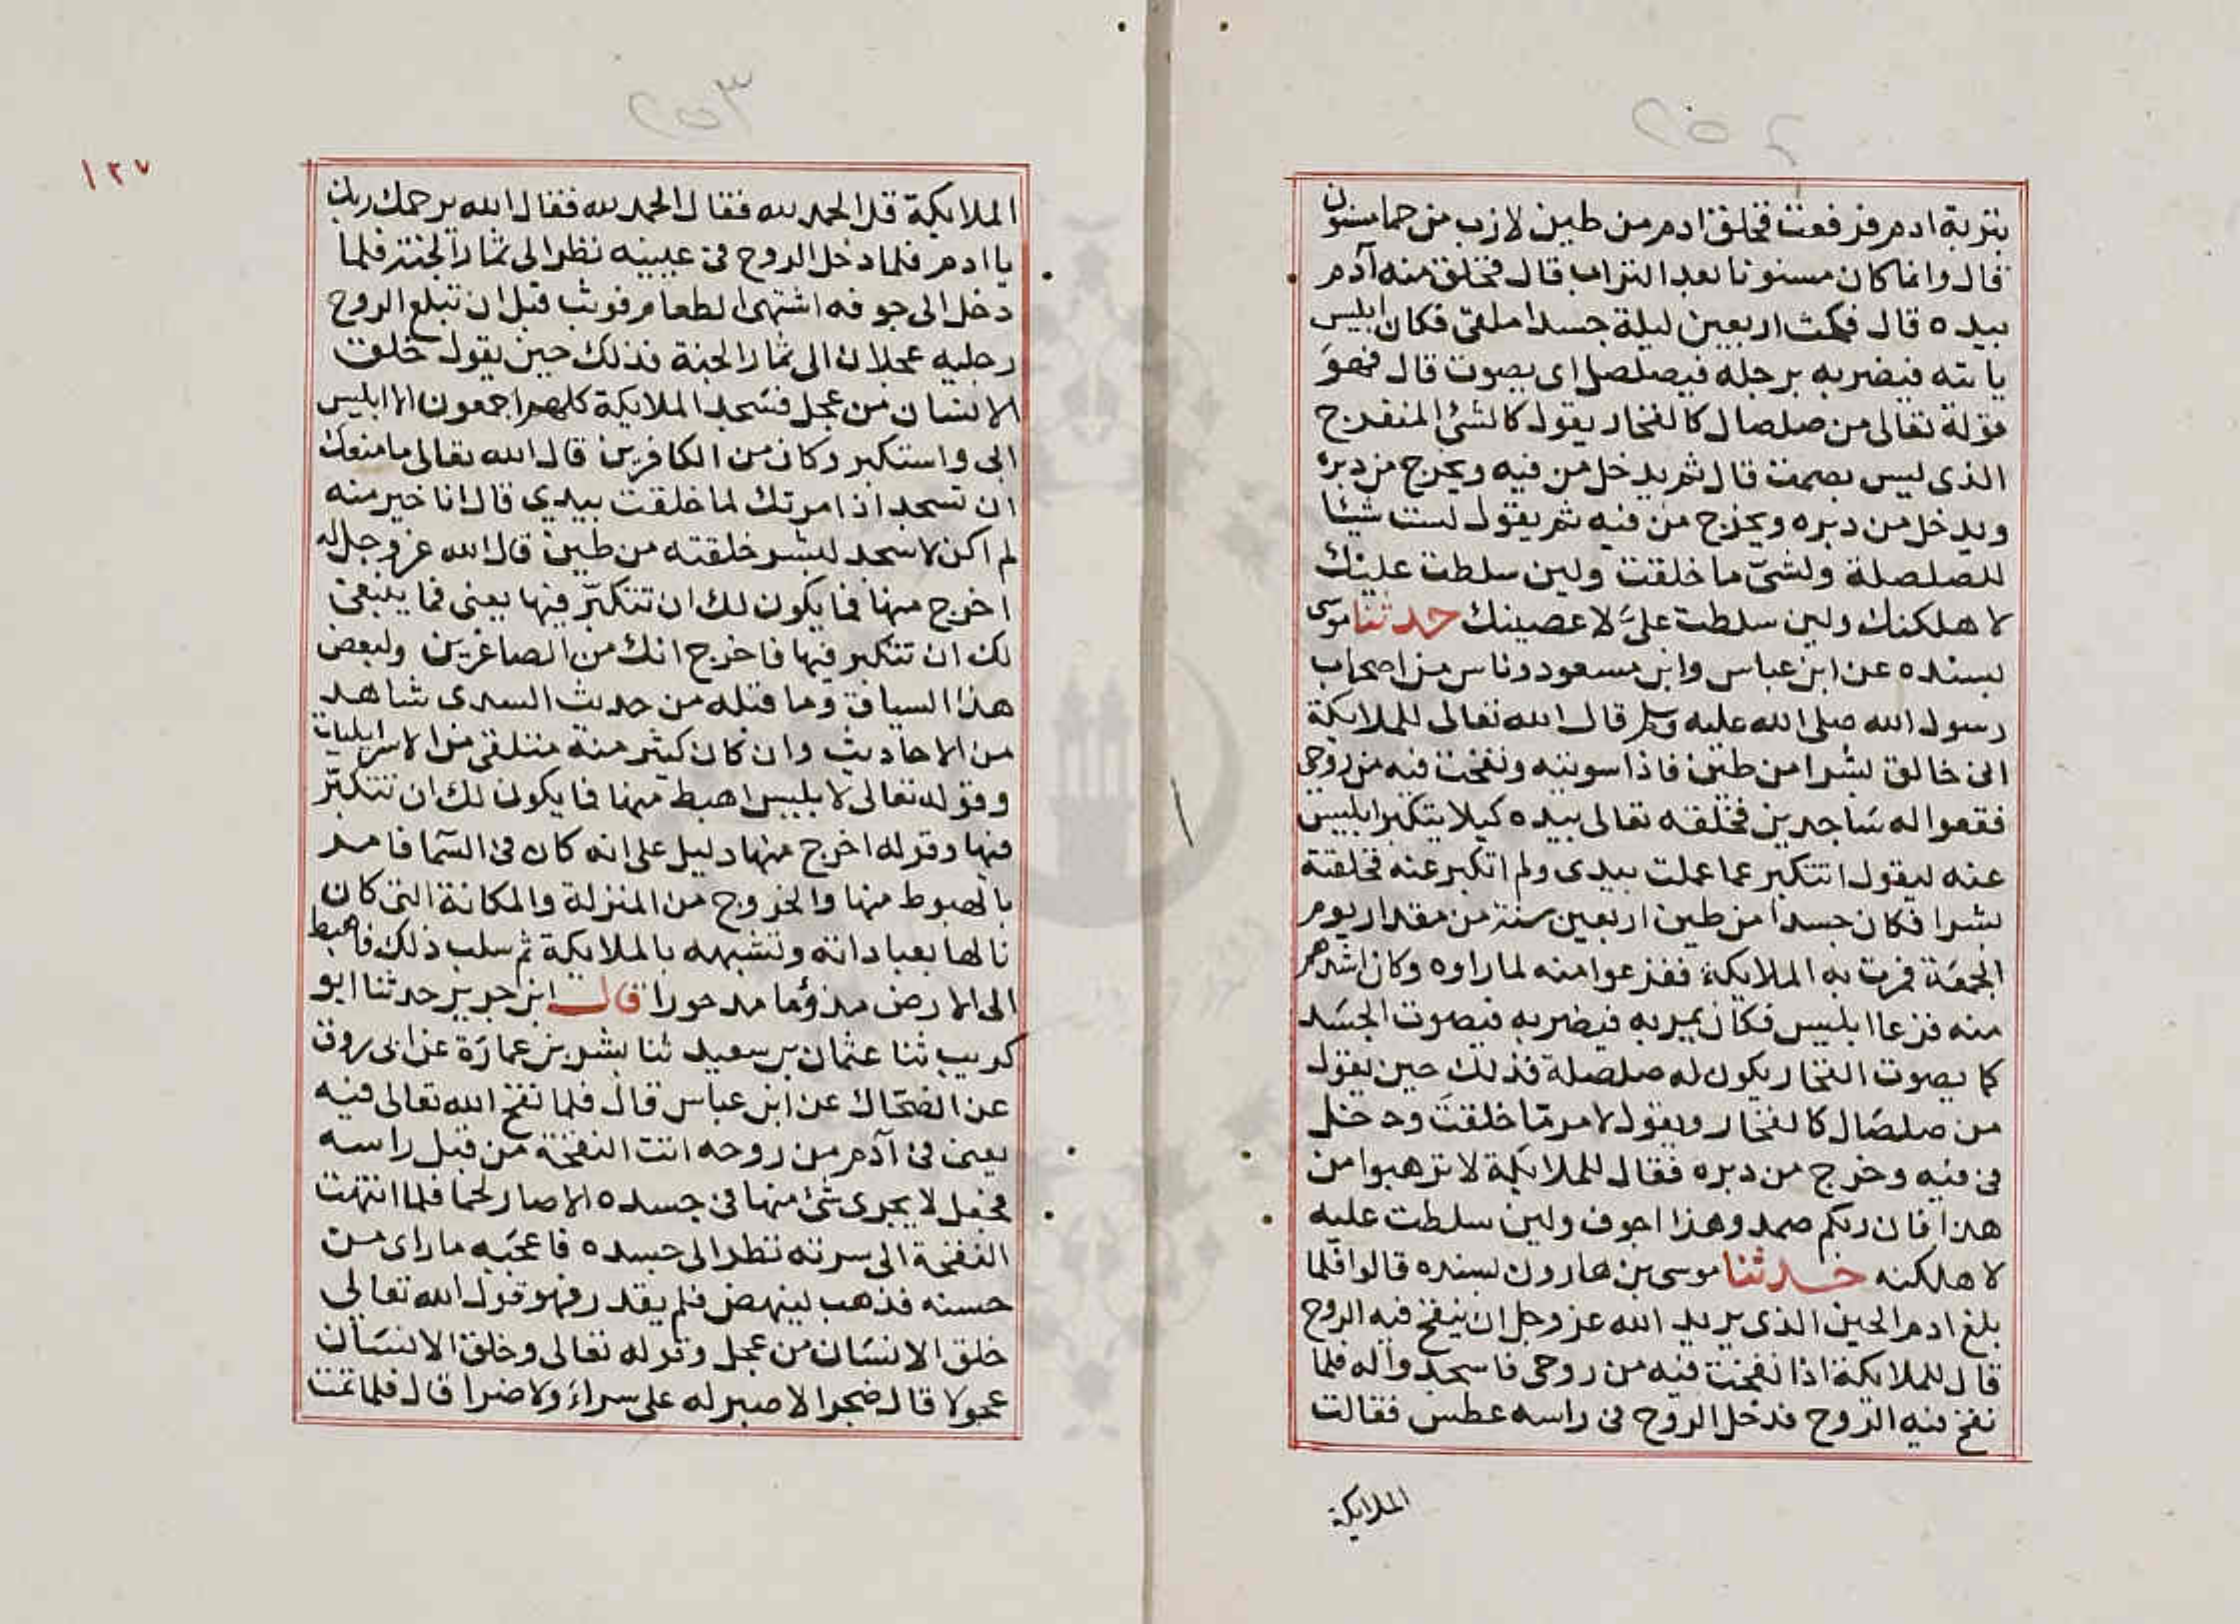 بتربة ادم فرفعت فخلق ادم من طين لازب من حما مسنون
قال وانما كان مسنونا بعد التراب قال فخلق منه آدم
بيده قال فمكث اربعين ليلة جسدا ملقى فكان ابليس
ياتيه فيضربه برجله فيصلصل اى يصوت قال فهو
قوله تعالى من صلصال كالفخار يقول كالشئ المنفرج
الذى ليس بصمت قال ثم يدخل من فيه ويخرج من دبره
ويدخل من دبره ويخرج من فيه ثم يقول لست شيئا
للصلصلة ولشىء ما خلقت ولين سلطت عليك
لاهلكنك ولين سلطت علىّ لاعصينك حدثنا موسى
بسنده عن ابن عباس وابن مسعود وناس من اصحاب
رسول الله صلى الله عليه وسلم قال الله تعالى للملايكة
انى خالق بشرا من طين فاذا سويته ونفخت فيه من روحى
فقعوا له ساجدين فخلقه تعالى بيده كيلا يتكبر ابليس
عنه ليقول اتتكبر عما عملت بيدى ولم اتكبر عنه فخلقته
بشرا فكان جسدا من طين اربعين سنة من مقدار يوم
الجمعة فمرت به الملايكة ففزعوا منه لما راوه وكان اشدهم
منه فزعا ابليس فكان يمر به فيضربه فيصوت الجسد
كما يصوت الفخار يكون له صلصلة فذلك حين يقول
من صلصال كالفخار ويقول لامر مّا خلقت ودخل
فى فيه وخرج من دبره فقال للملايكة لا ترهبوا من
هذا فان ربكم صمد وهذا اجوف ولين سلطت عليه
لاهلكنه حدثنا موسى بن هارون بسنده قالوا فلما
بلغ ادم الحين الذى يريد الله عز وجل ان ينفخ فيه الروح
قال للملايكة اذا نفخت فيه من روحى فاسجدوا له فلما
نفخ فيه الروح فدخل الروح فى راسه عطس فقالت
الملايكة
٢٥٢
٢٥٣
١٢٧
الملايكة قل الحمد لله فقال الحمد لله فقال الله يرحمك ربك
يا ادم فلما دخل الروح فى عينيه نظر الى ثمار الجنة فلما
دخل الى جوفه اشتهى الطعام فوثب قبل ان تبلغ الروح
رجليه عجلان الى ثمار الجنة فذلك حين يقول خلق
الانسان من عجل فسجد الملايكة كلهم اجمعون الا ابليس
ابى واستكبر وكان من الكافرين قال الله تعالى ما منعك
ان تسجد اذ امرتك لما خلقت بيدي قال انا خير منه
لم اكن لاسجد لبشر خلقته من طين قال الله عز وجل له
اخرج منها فما يكون لك ان تتكبّر فيها يعنى فما ينبغى
لك ان تتكبر فيها فاخرج انك من الصاغرين ولبعض
هذا السياق وما قبله من حديث السدى شاهد
من الاحاديث وان كان كثير منه متلقى من الاسرايليات
وقوله تعالى لابليس اهبط منها فما يكون لك ان تتكبّر
فيها وقوله اخرج منها دليل على انه كان فى السما فامر
بالهبوط منها والخروج من المنزلة والمكانة التى كان
نالها بعباداته وتشبهه بالملايكة ثم سلب ذلك فاهبط
الى الارض مذؤما مدحورا قال ابن جرير حدثنا ابو
كريب ثنا عثمان بن سعيد ثنا بشر بن عمارة عن ابى روق
عن الضحّاك عن ابن عباس قال فلما نفخ الله تعالى فيه
يعنى فى آدم من روحه اتت النفخة من قبل راسه
فجعل لا يجرى شئ منها فى جسده الا صار لحما فلما انتهت
النفخة الى سرته نظر الى جسده فاعجبه ما راى من
حسنه فذهب لينهض فلم يقدر فهو قول الله تعالى
خلق الانسان من عجل وقوله تعالى وخلق الانسان
عجولا قال ضجرا لا صبر له على سراء ولا ضرا قال فلما تمت